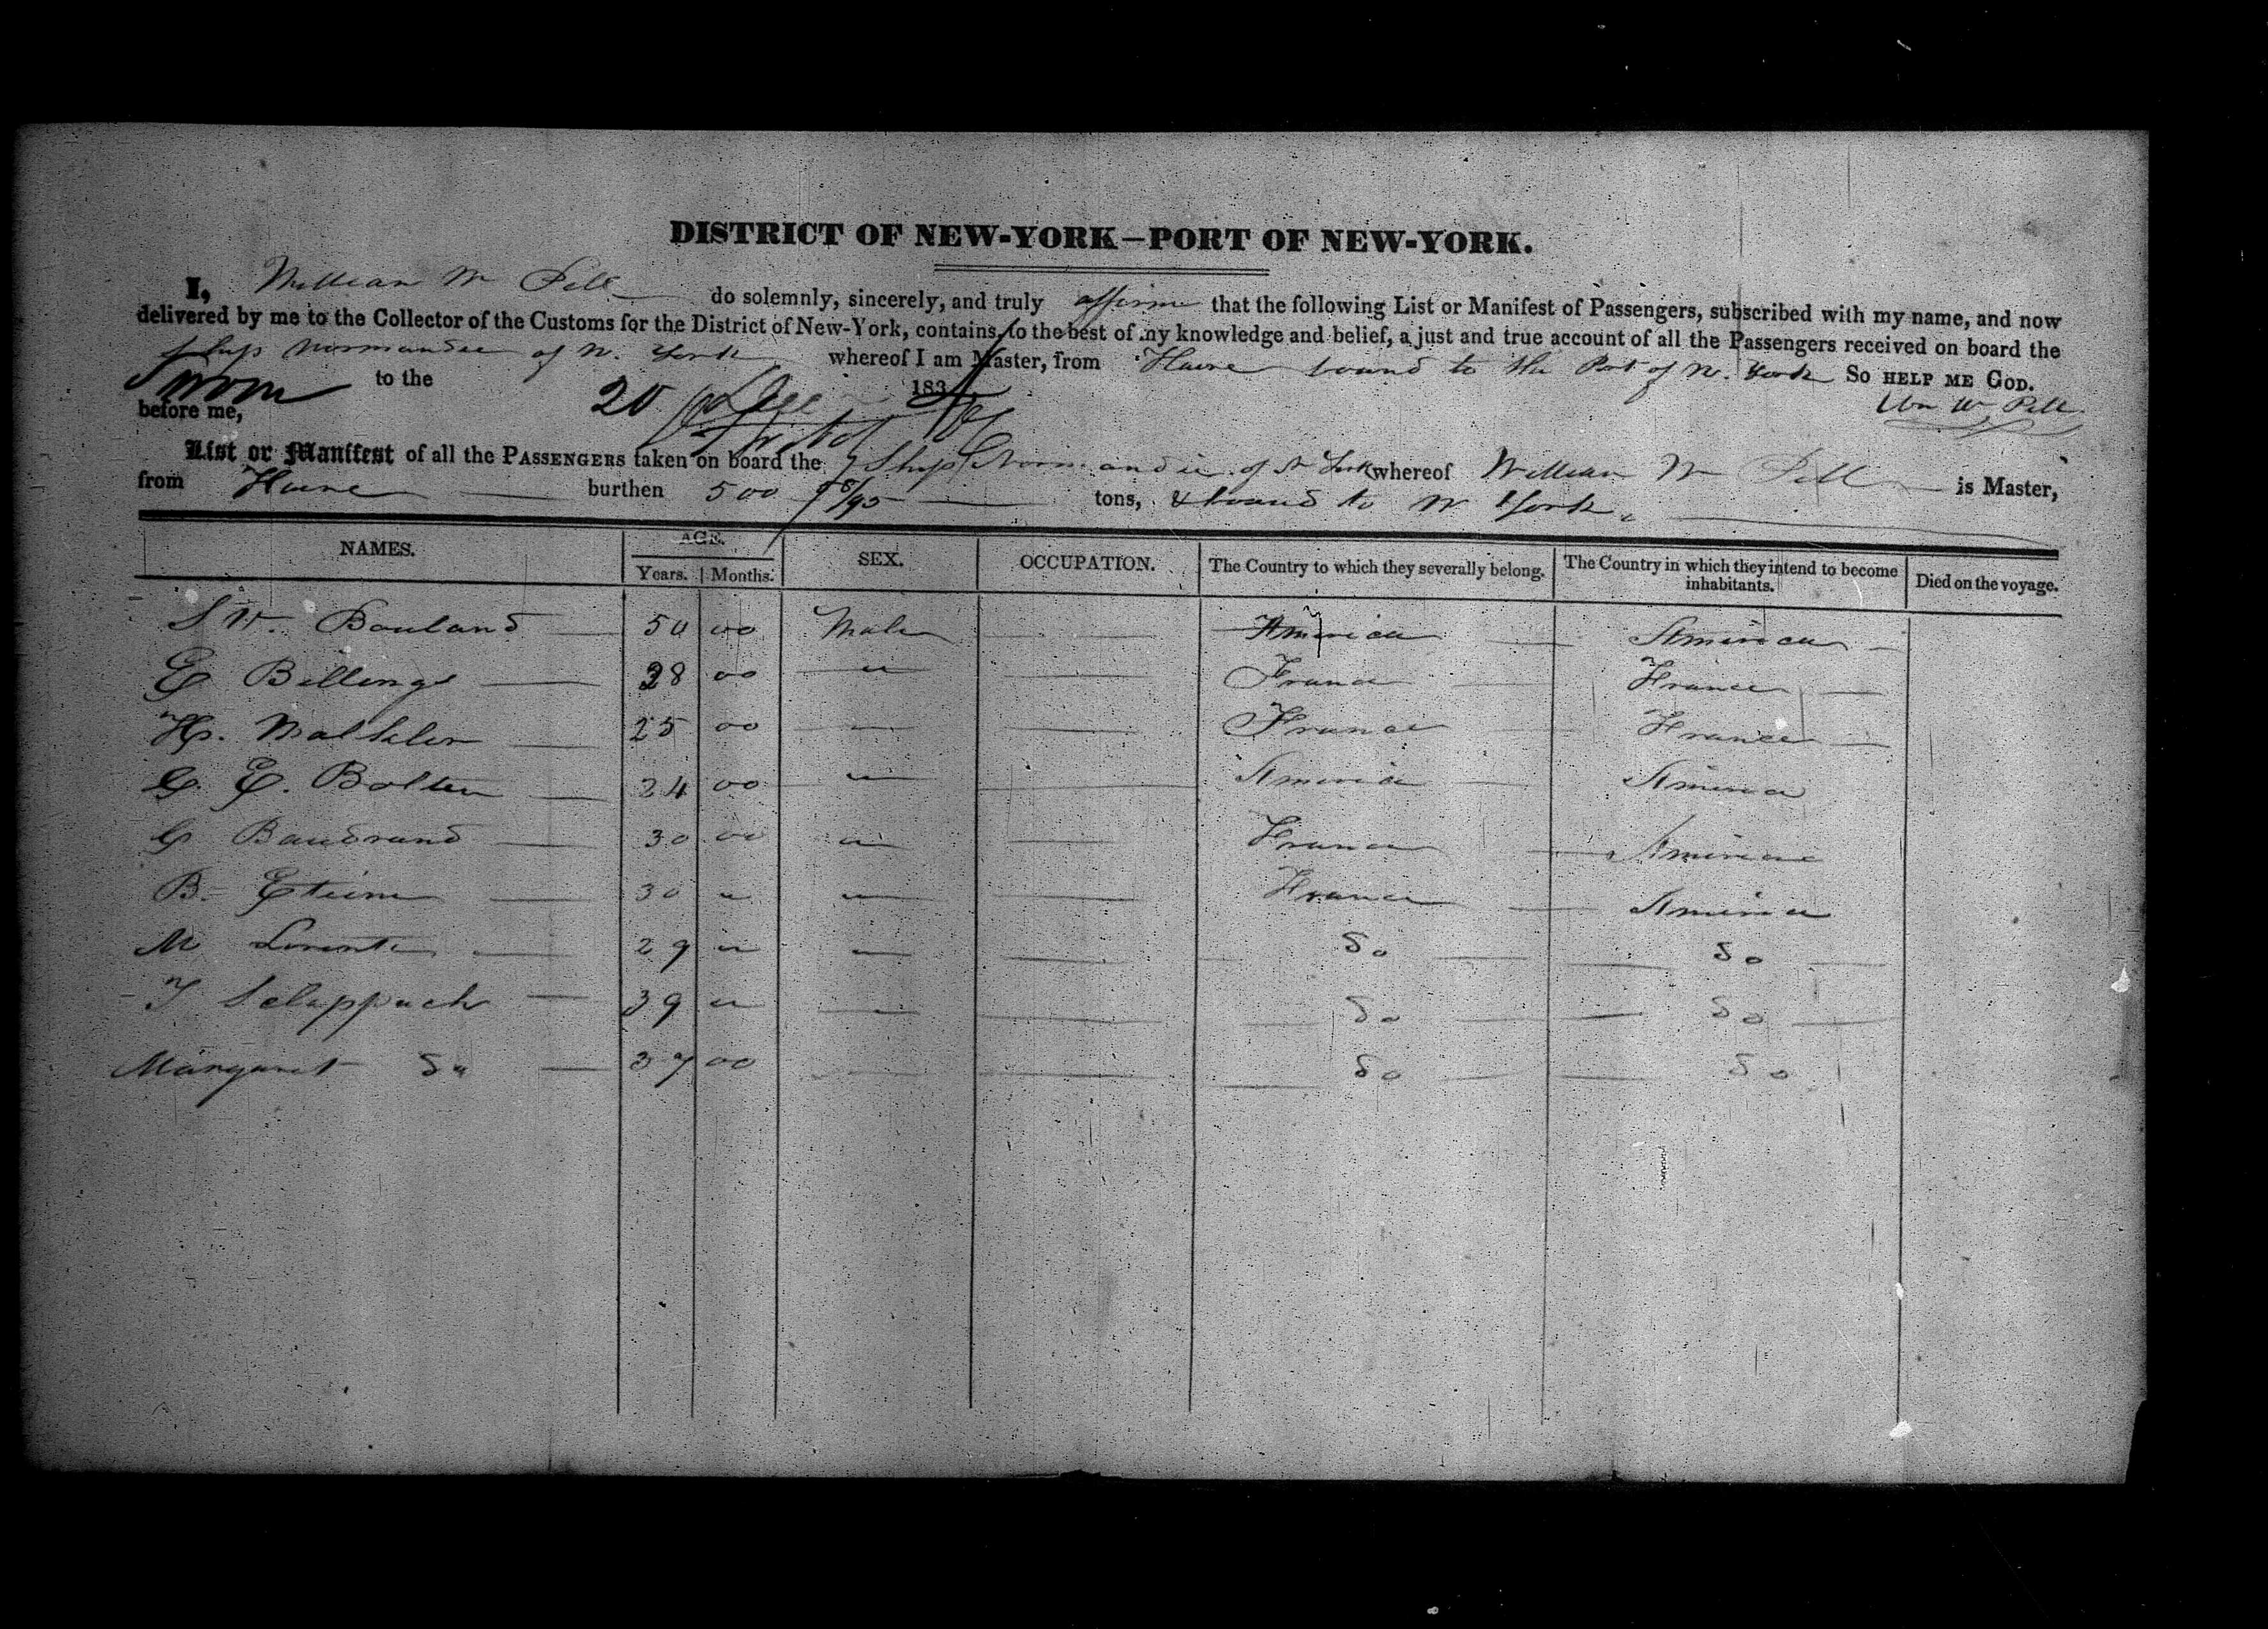 DISTRICT OF NEW-YORK—PORT OF NEW-YORK.
I, William W Pell do solemnly, sincerely, and truly affirm that the following List or Manifest of Passengers, subscribed with my name, and now
delivered by me to the Collector of the Customs for the District of New-York, contains, to the best of my knowledge and belief, a just and true account of all the Passengers received on board the
Ship Normandie of N. York whereof I am Master, from Havre bound to the Port of N. York So HELP ME GOD.
Sworn to the 20 Dec 183
before me, Wm W Pell
List or Manifest of all the PASSENGERS taken on board the Ship Normandie of N York whereof William W Pell is Master,
from Havre burthen 500 /95 tons, & bound to N York
NAMES. AGE. SEX. OCCUPATION. The Country to which they severally belong. The Country in which they intend to become inhabitants. Died on the voyage.
Years. Months.
S W. Bouland 50 00 Male America America
E Billings 28 00 " France France
H. 25 00 " France France
C. E. Bolten 24 00 " America America
C Baudrand 30 00 " France America
B. Etienne 30 " " France America
M 29 " " do do
T 39 " " do do
Margaret do 37 00 do do